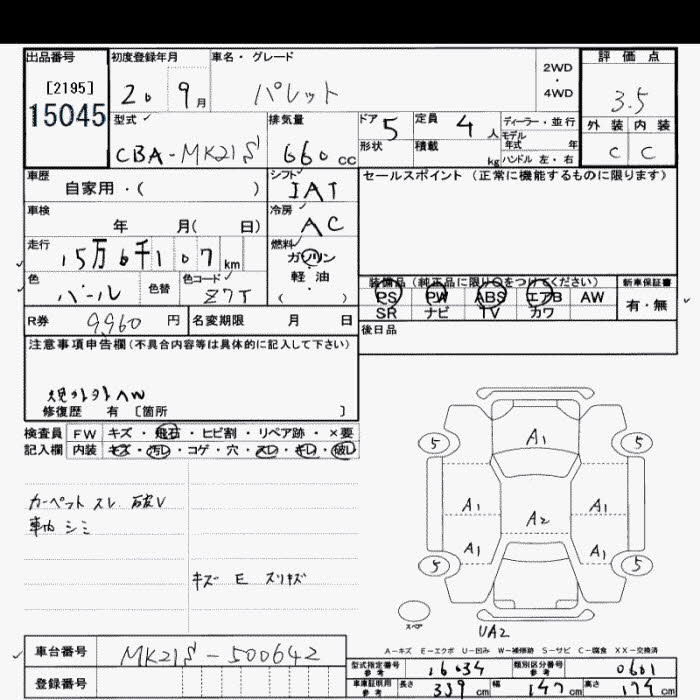 出品番号 初度登録年月 車名・グレード 評価点
[2195] 20 9月 パレット 2WD・4WD 3.5
15045 型式 排気量 ドア 5 定員 4人 ディーラー・並行 外装 内装
モデル年式 年
CBA-MK21S 660cc 形状 積載 kg ハンドル 左・右 C C
車歴 シフト セールスポイント (正常に機能するものに限ります)
自家用・( ) IAT
車検 冷房
年 月( 日) AC
走行 燃料
15万6千107km ガソリン
色 色替 色コード 軽油 装備品 (純正品に限り○をつけてください) 新車保証書
パール Z7T ( ) PS PW ABS エアB AW 有・無
SR ナビ TV カワ
R券 9,960円 名変期限 月 日 後日品
注意事項申告欄(不具合内容等は具体的に記入して下さい)
AW
修復歴 有 〔箇所 〕
検査員 FW キズ・飛石・ヒビ割・リペア跡・×要
記入欄 内装 キズ・汚レ・コゲ・穴・スレ・キレ・破レ
A1
5 5
カーペット スレ 破レ A1 A1
車内 シミ A2
A1 A1
キズ E スリキズ 5 5
スペア UA2
A-キズ E-エクボ U-凹み W-補修跡 S-サビ C-腐食 XX-交換済
車台番号 MK21S-500642
型式指定番号 参考 16034 類別区分番号 参考 0601
登録番号 車庫証明用 参考 長さ 339cm 幅 147cm 高さ 174cm